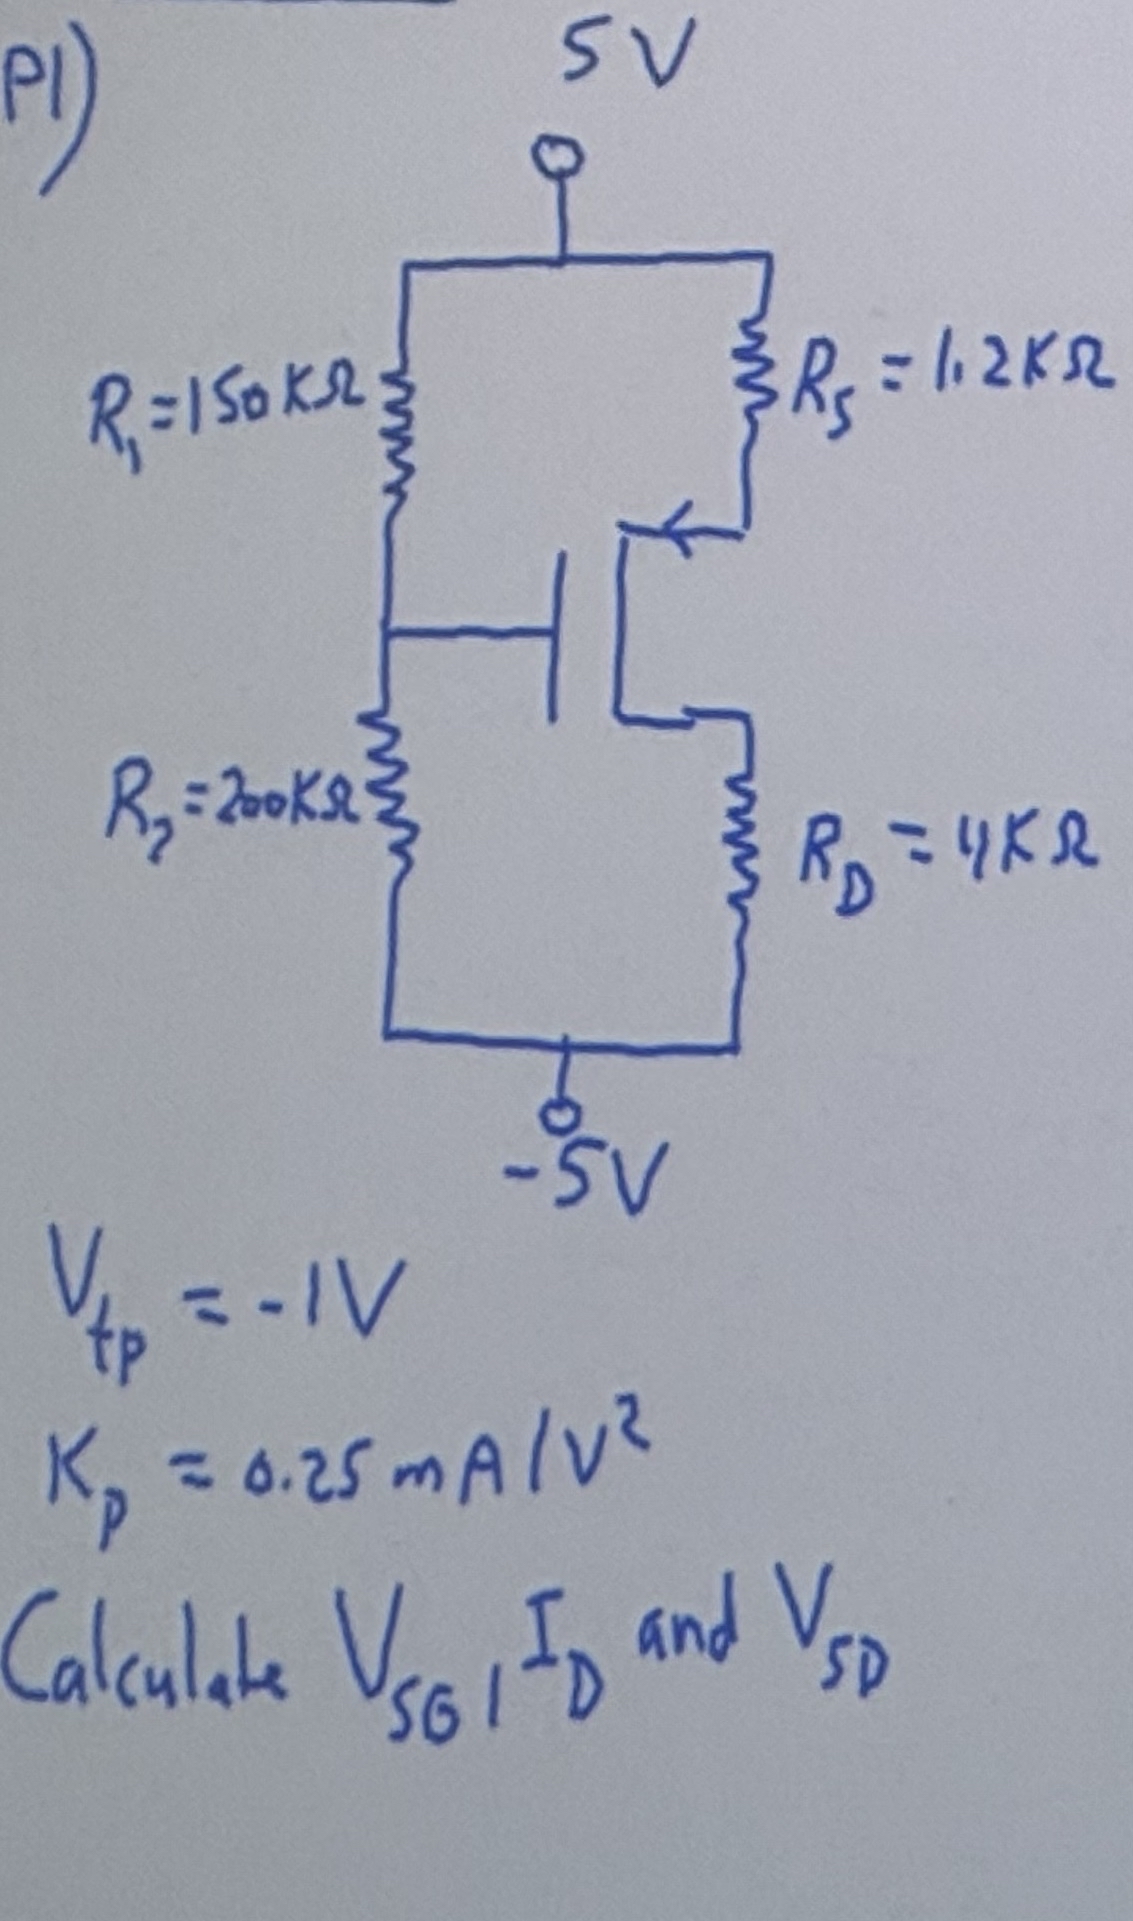 P1)
5V
R₁=150KΩ
R_S = 1.2KΩ
R₂=200KΩ
R_D = 4KΩ
-5V
V_tp = -1V
K_p = 0.25 mA/V²
Calculate V_SG, I_D and V_SD